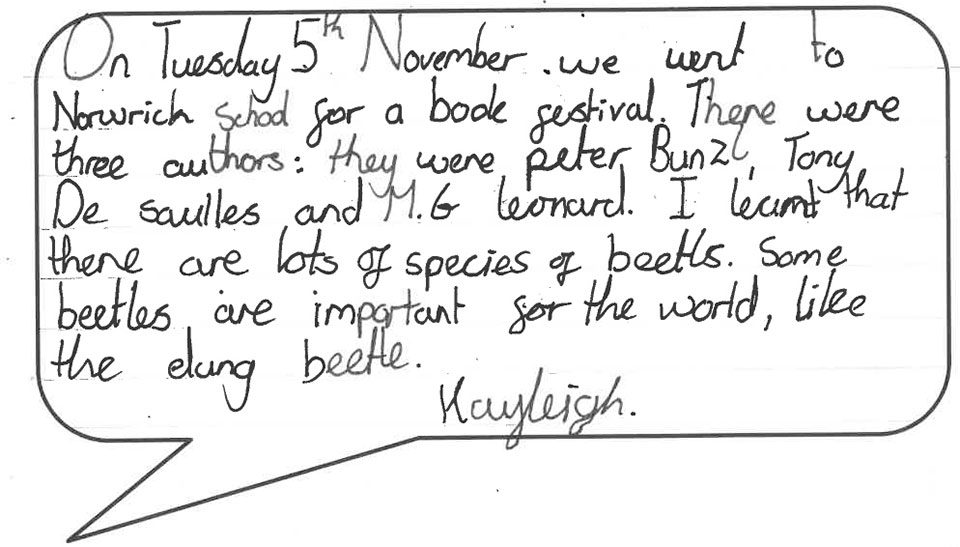 On Tuesday 5th November . we went to
Norwrich School for a book festival. There were
three authors: they were peter Bunzl, Tony
De saulles and M.G leonard. I learnt that
there are lots of species of beetls. Some
beetles are important for the world, like
the dung beetle.
Kayleigh.